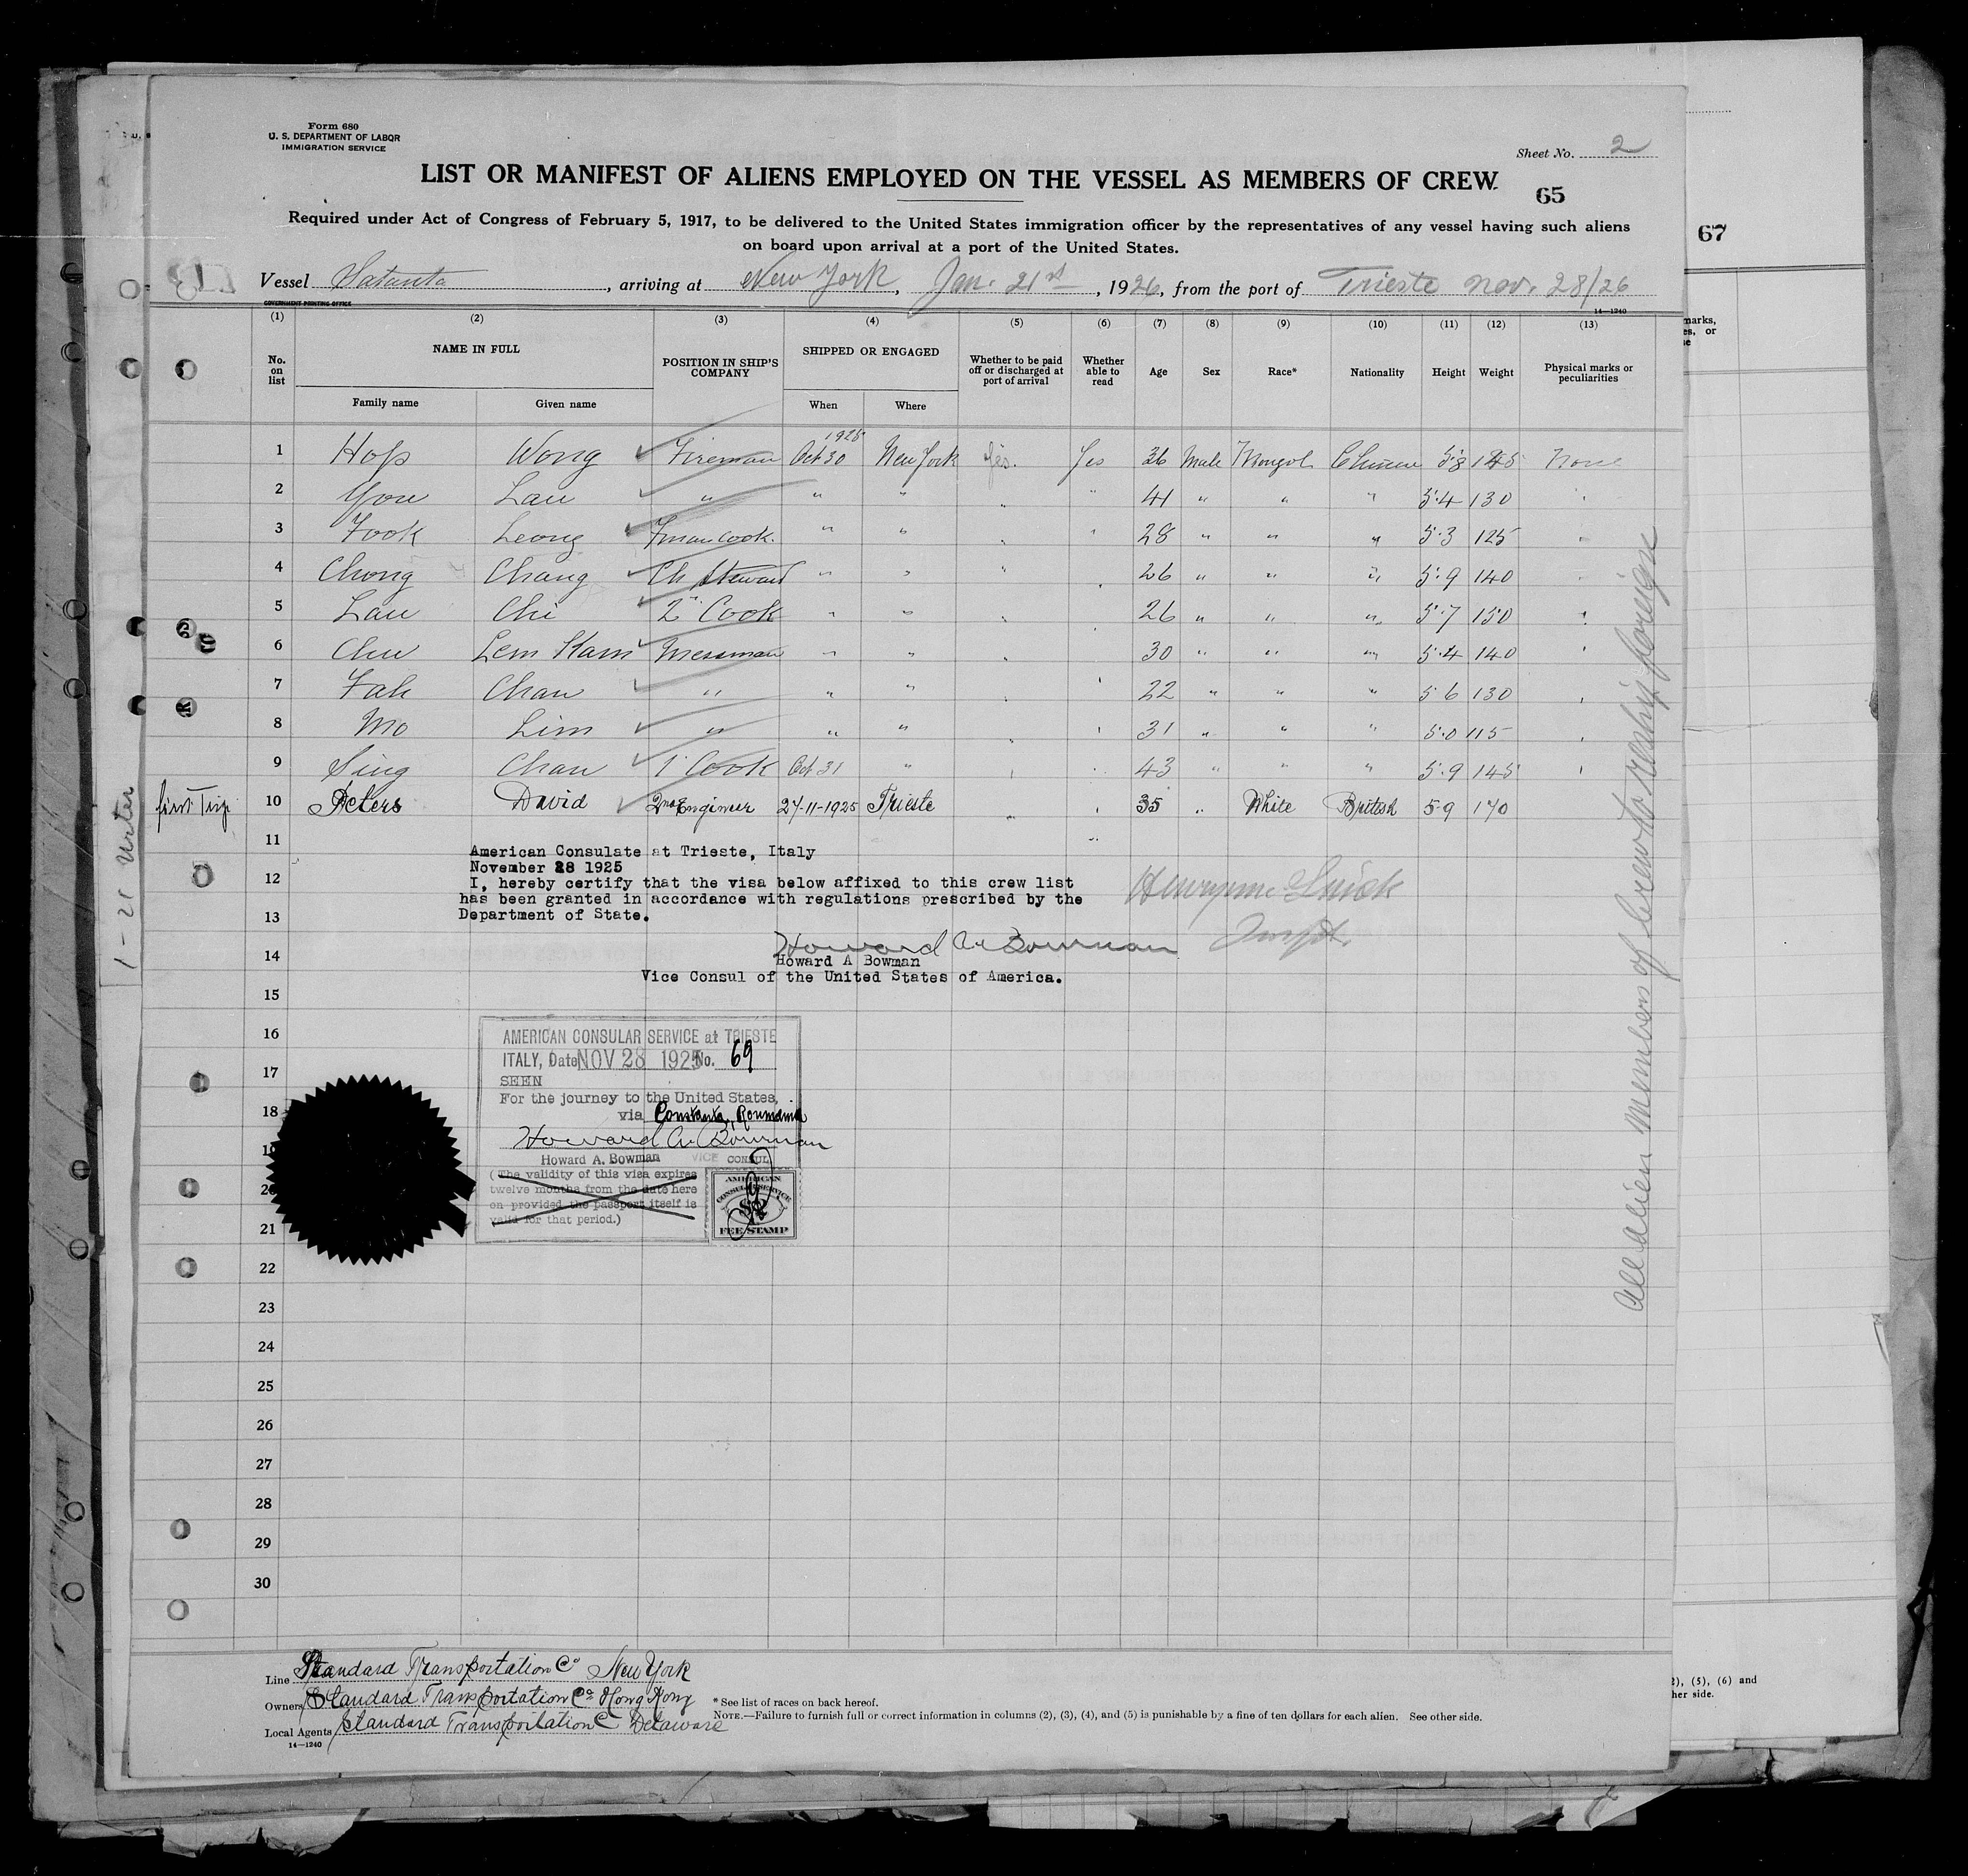 Form 680
U. S. DEPARTMENT OF LABOR
IMMIGRATION SERVICE
Sheet No. 2
LIST OR MANIFEST OF ALIENS EMPLOYED ON THE VESSEL AS MEMBERS OF CREW
65
Required under Act of Congress of February 5, 1917, to be delivered to the United States immigration officer by the representatives of any vessel having such aliens
on board upon arrival at a port of the United States.
67
Vessel Satanta, arriving at New York, Jan. 21st, 1926, from the port of Trieste Nov. 28/26
GOVERNMENT PRINTING OFFICE
14—1240
(1) (2) (3) (4) (5) (6) (7) (8) (9) (10) (11) (12) (13)
No. on list NAME IN FULL POSITION IN SHIP'S COMPANY SHIPPED OR ENGAGED Whether to be paid off or discharged at port of arrival Whether able to read Age Sex Race* Nationality Height Weight Physical marks or peculiarities
Family name Given name When Where
1925
1 Hop Wong Fireman Oct 30 New York Yes. Yes 36 Male Mongol Chinese 5.8 145 None
2 You Lau " " " " 41 " " " 5.4 130 "
3 Fook Leong Fman Cook. " " " " 28 " " " 5.3 125 "
4 Chong Chang Ch Steward " " " " 26 " " " 5.9 140 "
5 Lau Chi 2" Cook " " " " 26 " " " 5.7 150 "
6 Chu Lem Kam Messman " " " " 30 " " " 5.4 140 "
7 Fah Chan " " " " " 22 " " " 5 6 130 "
8 Mo Lim " " " " " 31 " " " 5.0 115 "
9 Sing Chan 1" Cook Oct 31 " " " 43 " " " 5.9 145 "
first Trip 10 Peters David 2nd Engineer 27-11-1925 Trieste " " 35 " White British 5-9 170
11
American Consulate at Trieste, Italy
November 28 1925
12 I, hereby certify that the visa below affixed to this crew list
has been granted in accordance with regulations prescribed by the
13 Department of State.
Howard A. Bowman
14 Howard A Bowman
Vice Consul of the United States of America.
15
16 AMERICAN CONSULAR SERVICE at TRIESTE
ITALY, Date NOV 28 1925 No. 69
17 SEEN
For the journey to the United States,
18 via Constanta, Roumania
Howard A. Bowman
19 Howard A. Bowman VICE CONSUL
(The validity of this visa expires
20 twelve months from the date here
on provided the passport itself is
21 valid for that period.)
AMERICAN
CONSULAR SERVICE
$2
FEE STAMP
22
23
24
25
26
27
28
29
30
All alien members of crew to reship foreign
Inspt.
Line Standard Transportation Co New York
Owners Standard Transportation Co Hong Kong
Local Agents Standard Transportation C Delaware
14—1240
* See list of races on back hereof.
NOTE.—Failure to furnish full or correct information in columns (2), (3), (4), and (5) is punishable by a fine of ten dollars for each alien. See other side.
(5), (6) and
her side.